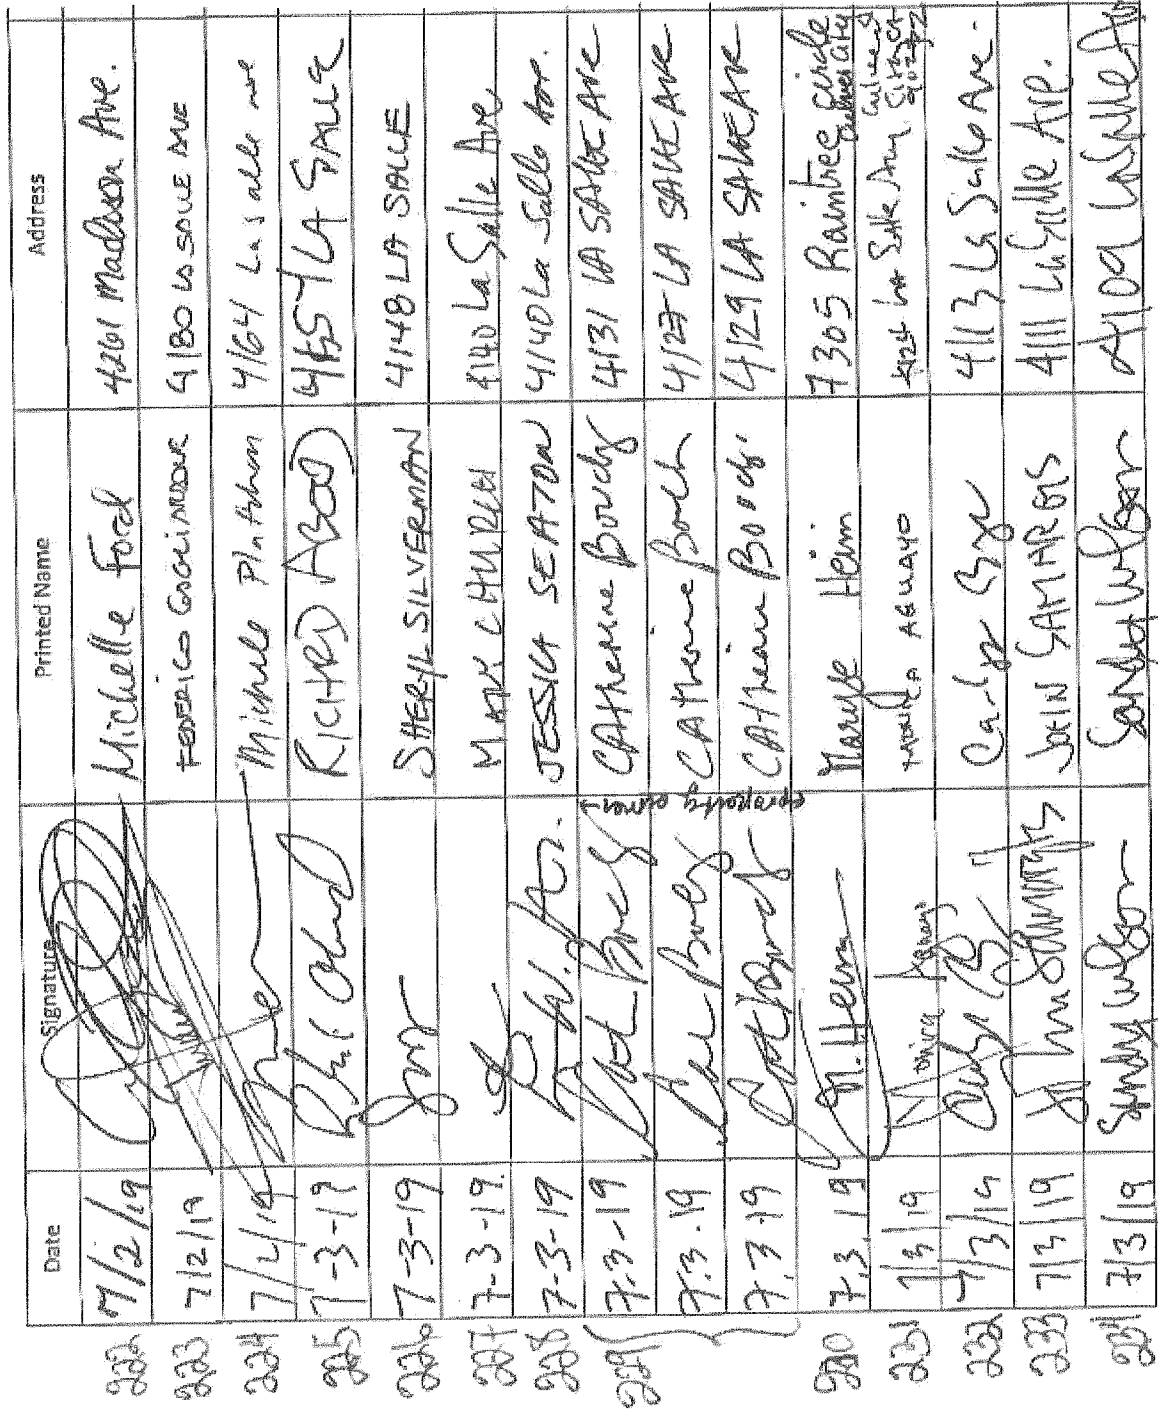 Date Signature Printed Name Address
222 7/2/19 Michelle Ford 4261 Madison Ave.
223 7/2/19 FEDERICO 4180 LA SALLE AVE
224 7/2/19 Michele 4164 Lasalle ave
225 7-3-19 RICHRD ABOOD 4157 LA SALLE
226 7-3-19 SHERYL SILVERMAN 4148 LA SALLE
227 7-3-19. MARK CHURCH 4140 La Salle Ave
228 7-3-19 JESSICA SEATON 4140 La Salle Ave.
229 7.3-19 Catherine 4131 LA SALLE AVE
property owner
7.3.19 Catherine 4127 LA SALLE AVE
7.3.19 Catherine 4129 LA SALLE AVE
230 7.3.19 M. Heim Heim 7305 Raintree circle
Culver City
231 7/3/19 Monica Aguayo MONICA AGUAYO 4124 LA Salle Ave, Culver City
232 7/3/19 Carlys 4113 La Salle Ave.
233 7/3/19 JOHN SAMARGIS 4111 La Salle Ave.
234 7/3/19 Sandy Wilson Sandy Wilson 4109 LaSalle Av